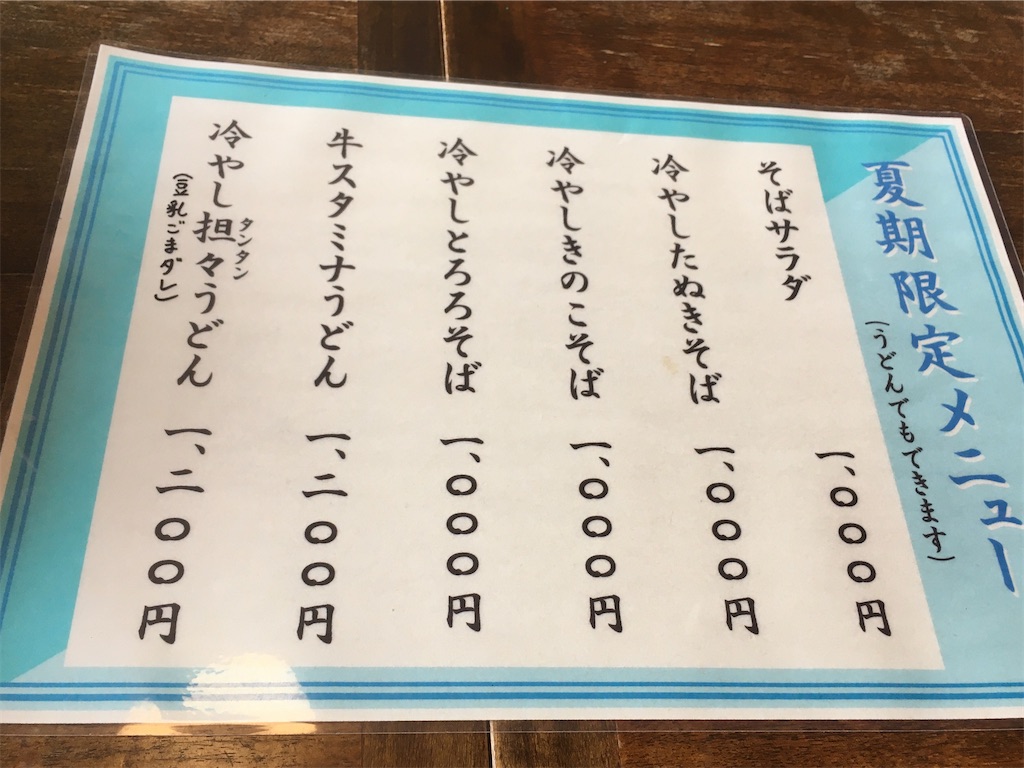 夏期限定メニュー
(うどんでもできます)
そばサラダ 一、〇〇〇円
冷やしたぬきそば 一、〇〇〇円
冷やしきのこそば 一、〇〇〇円
冷やしとろろそば 一、〇〇〇円
牛スタミナうどん 一、二〇〇円
タンタン
冷やし担々うどん 一、二〇〇円
(豆乳ごまダレ)